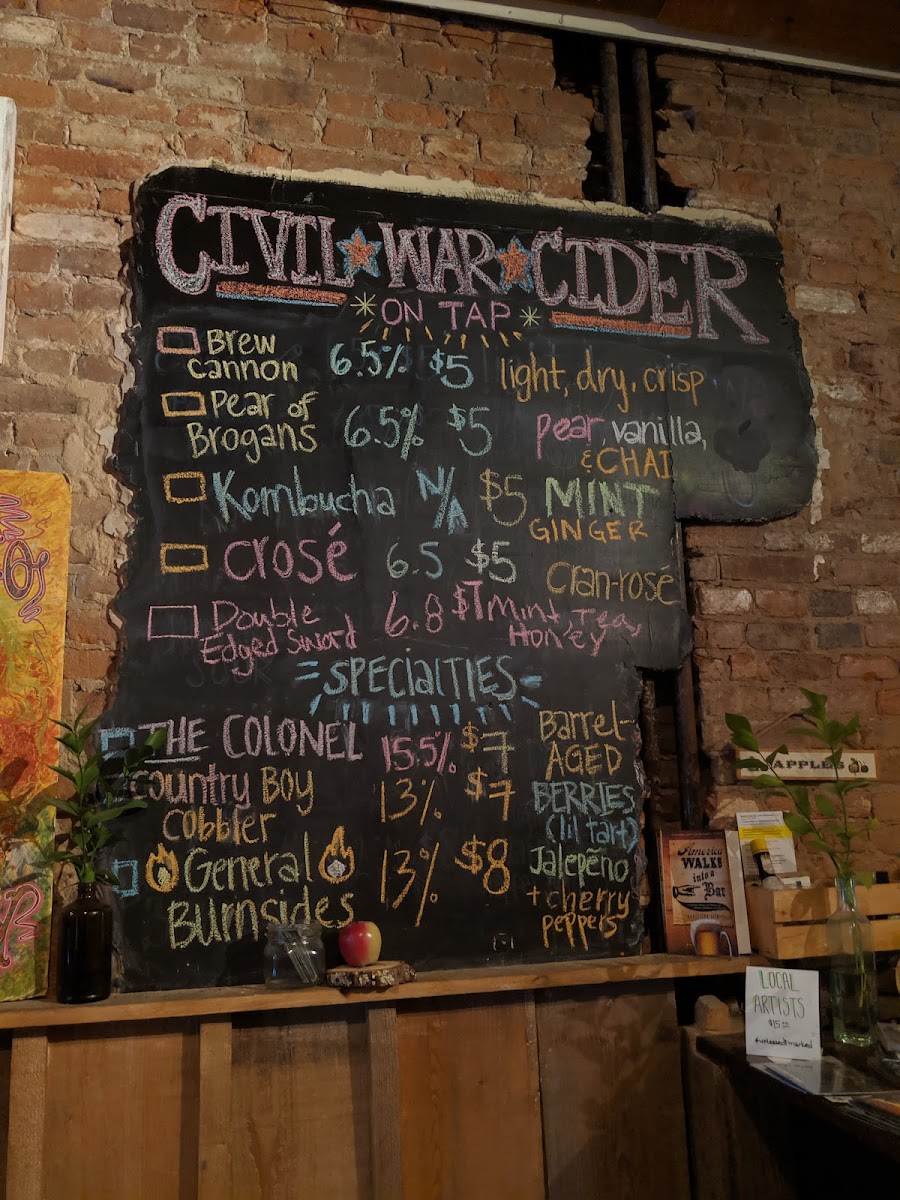 CIVIL WAR CIDER
ON TAP
Brew Cannon 6.5% $5 light, dry, crisp
Pear of Brogans 6.5% $5 pear, vanilla, & CHAI
Kombucha N/A $5 MINT GINGER
crosé 6.5 $5 Cran-rosé
Double Edged Sword 6.8 $7 Mint, Tea, Honey
SPECIALTIES
THE COLONEL 15.5% $7 Barrel-AGED
Country Boy Cobbler 13% $7 BERRIES (lil tart)
General Burnsides 13% $8 Jalepeño + cherry peppers
APPLES
America
WALKS
into a
Bar
LOCAL
ARTISTS
$15